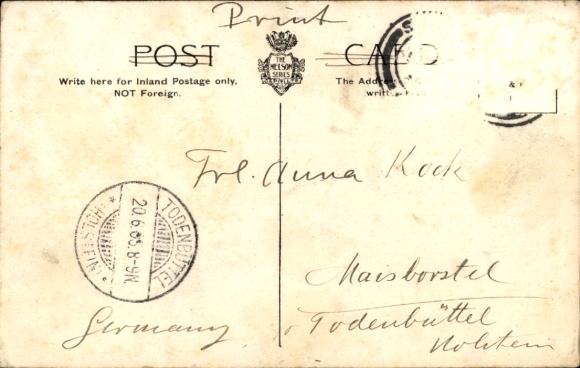 Print
POST CARD
THE
NELSON
SERIES
Write here for Inland Postage only,
NOT Foreign.
The Addre
writ
&
Frl. Anna Kock
TODENBÜTTEL
20.6.05.8-9N.
(HOLSTEIN)
Maisborstel
Todenbüttel
Holstein
Germany